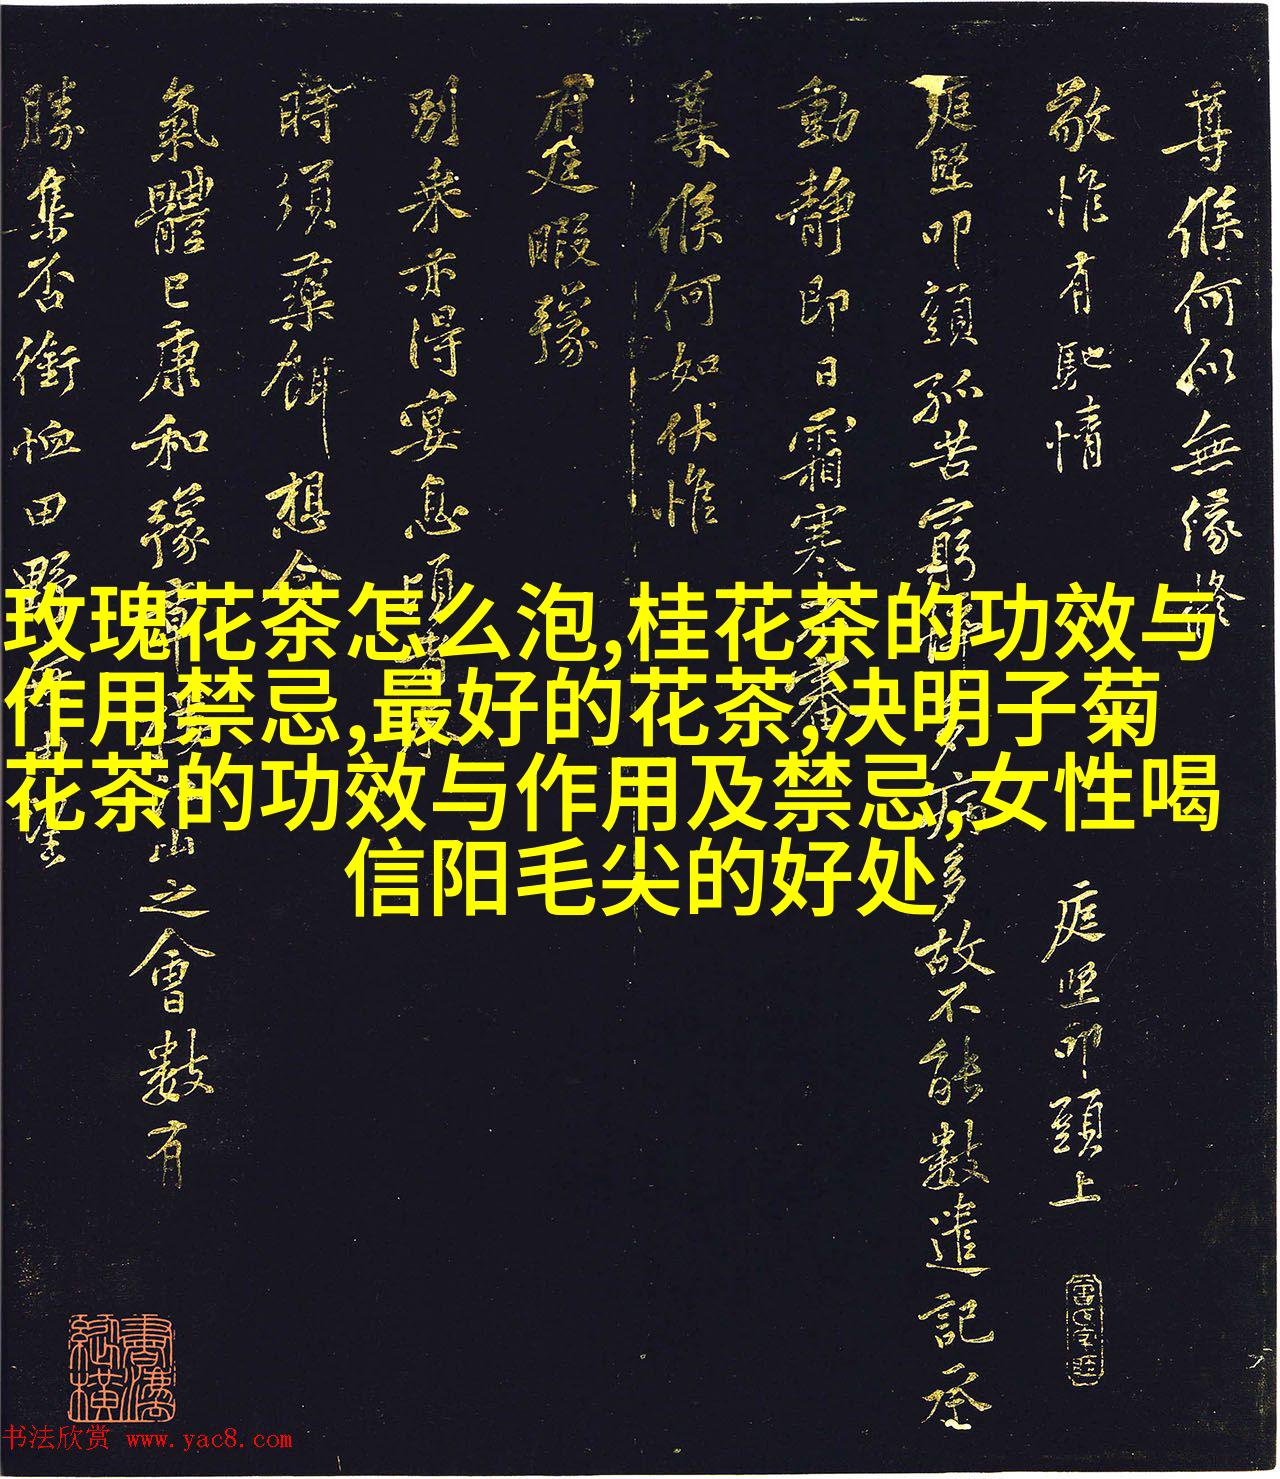 尊候何似無緣修
敬惟有馳情
庭堅叩頭上
庭堅叩頭孤苦窮
病多故不能數遣記承
動靜即日霜寒不審
尊候何如伏惟
府庭暇豫
別乘亦得宴息
時須藥餌想今
氣體已康和豫章
山之會數有
勝集否銜恤田野
玫瑰花茶怎么泡,桂花茶的功效与
作用禁忌,最好的花茶,决明子菊
花茶的功效与作用及禁忌,女性喝
信阳毛尖的好处
书法欣赏 www.yac8.com